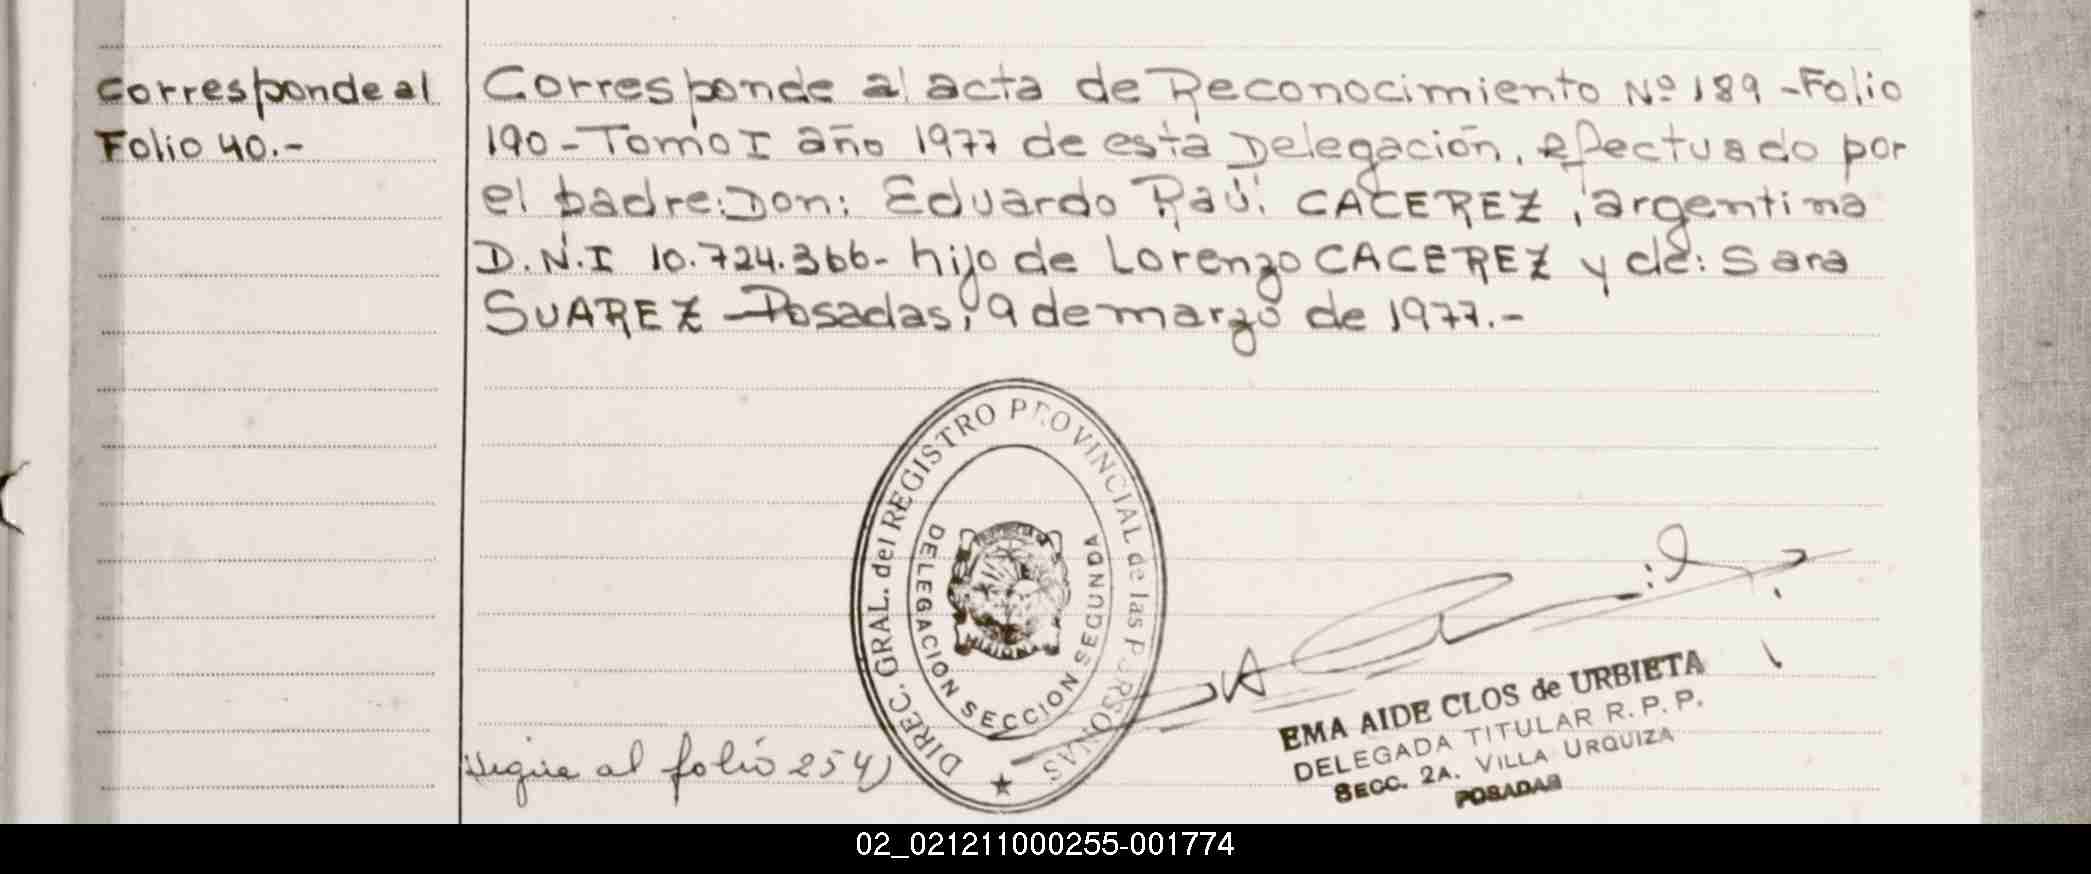 Corresponde al
Folio 40.-
Corresponde al acta de Reconocimiento Nº 189 - Folio
190 - Tomo I año 1977 de esta Delegación, efectuado por
el padre: Don: Eduardo Raúl CACEREZ, argentino
D.N.I 10.724.366- hijo de Lorenzo CACEREZ y de: Sara
SUAREZ - Posadas, 9 de marzo de 1977.-
DIREC. GRAL. del REGISTRO PROVINCIAL de las PERSONAS
DELEGACION SECCION SEGUNDA
MISIONES
EMA AIDE CLOS de URBIETA
DELEGADA TITULAR R. P. P.
SECC. 2A. VILLA URQUIZA
POSADAS
Sigue al folio 254)
02_021211000255-001774